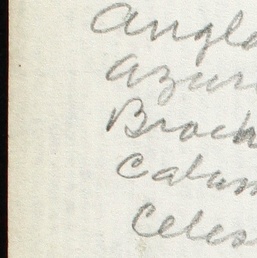 Angle
Azuri
Broch
Calum
Celes